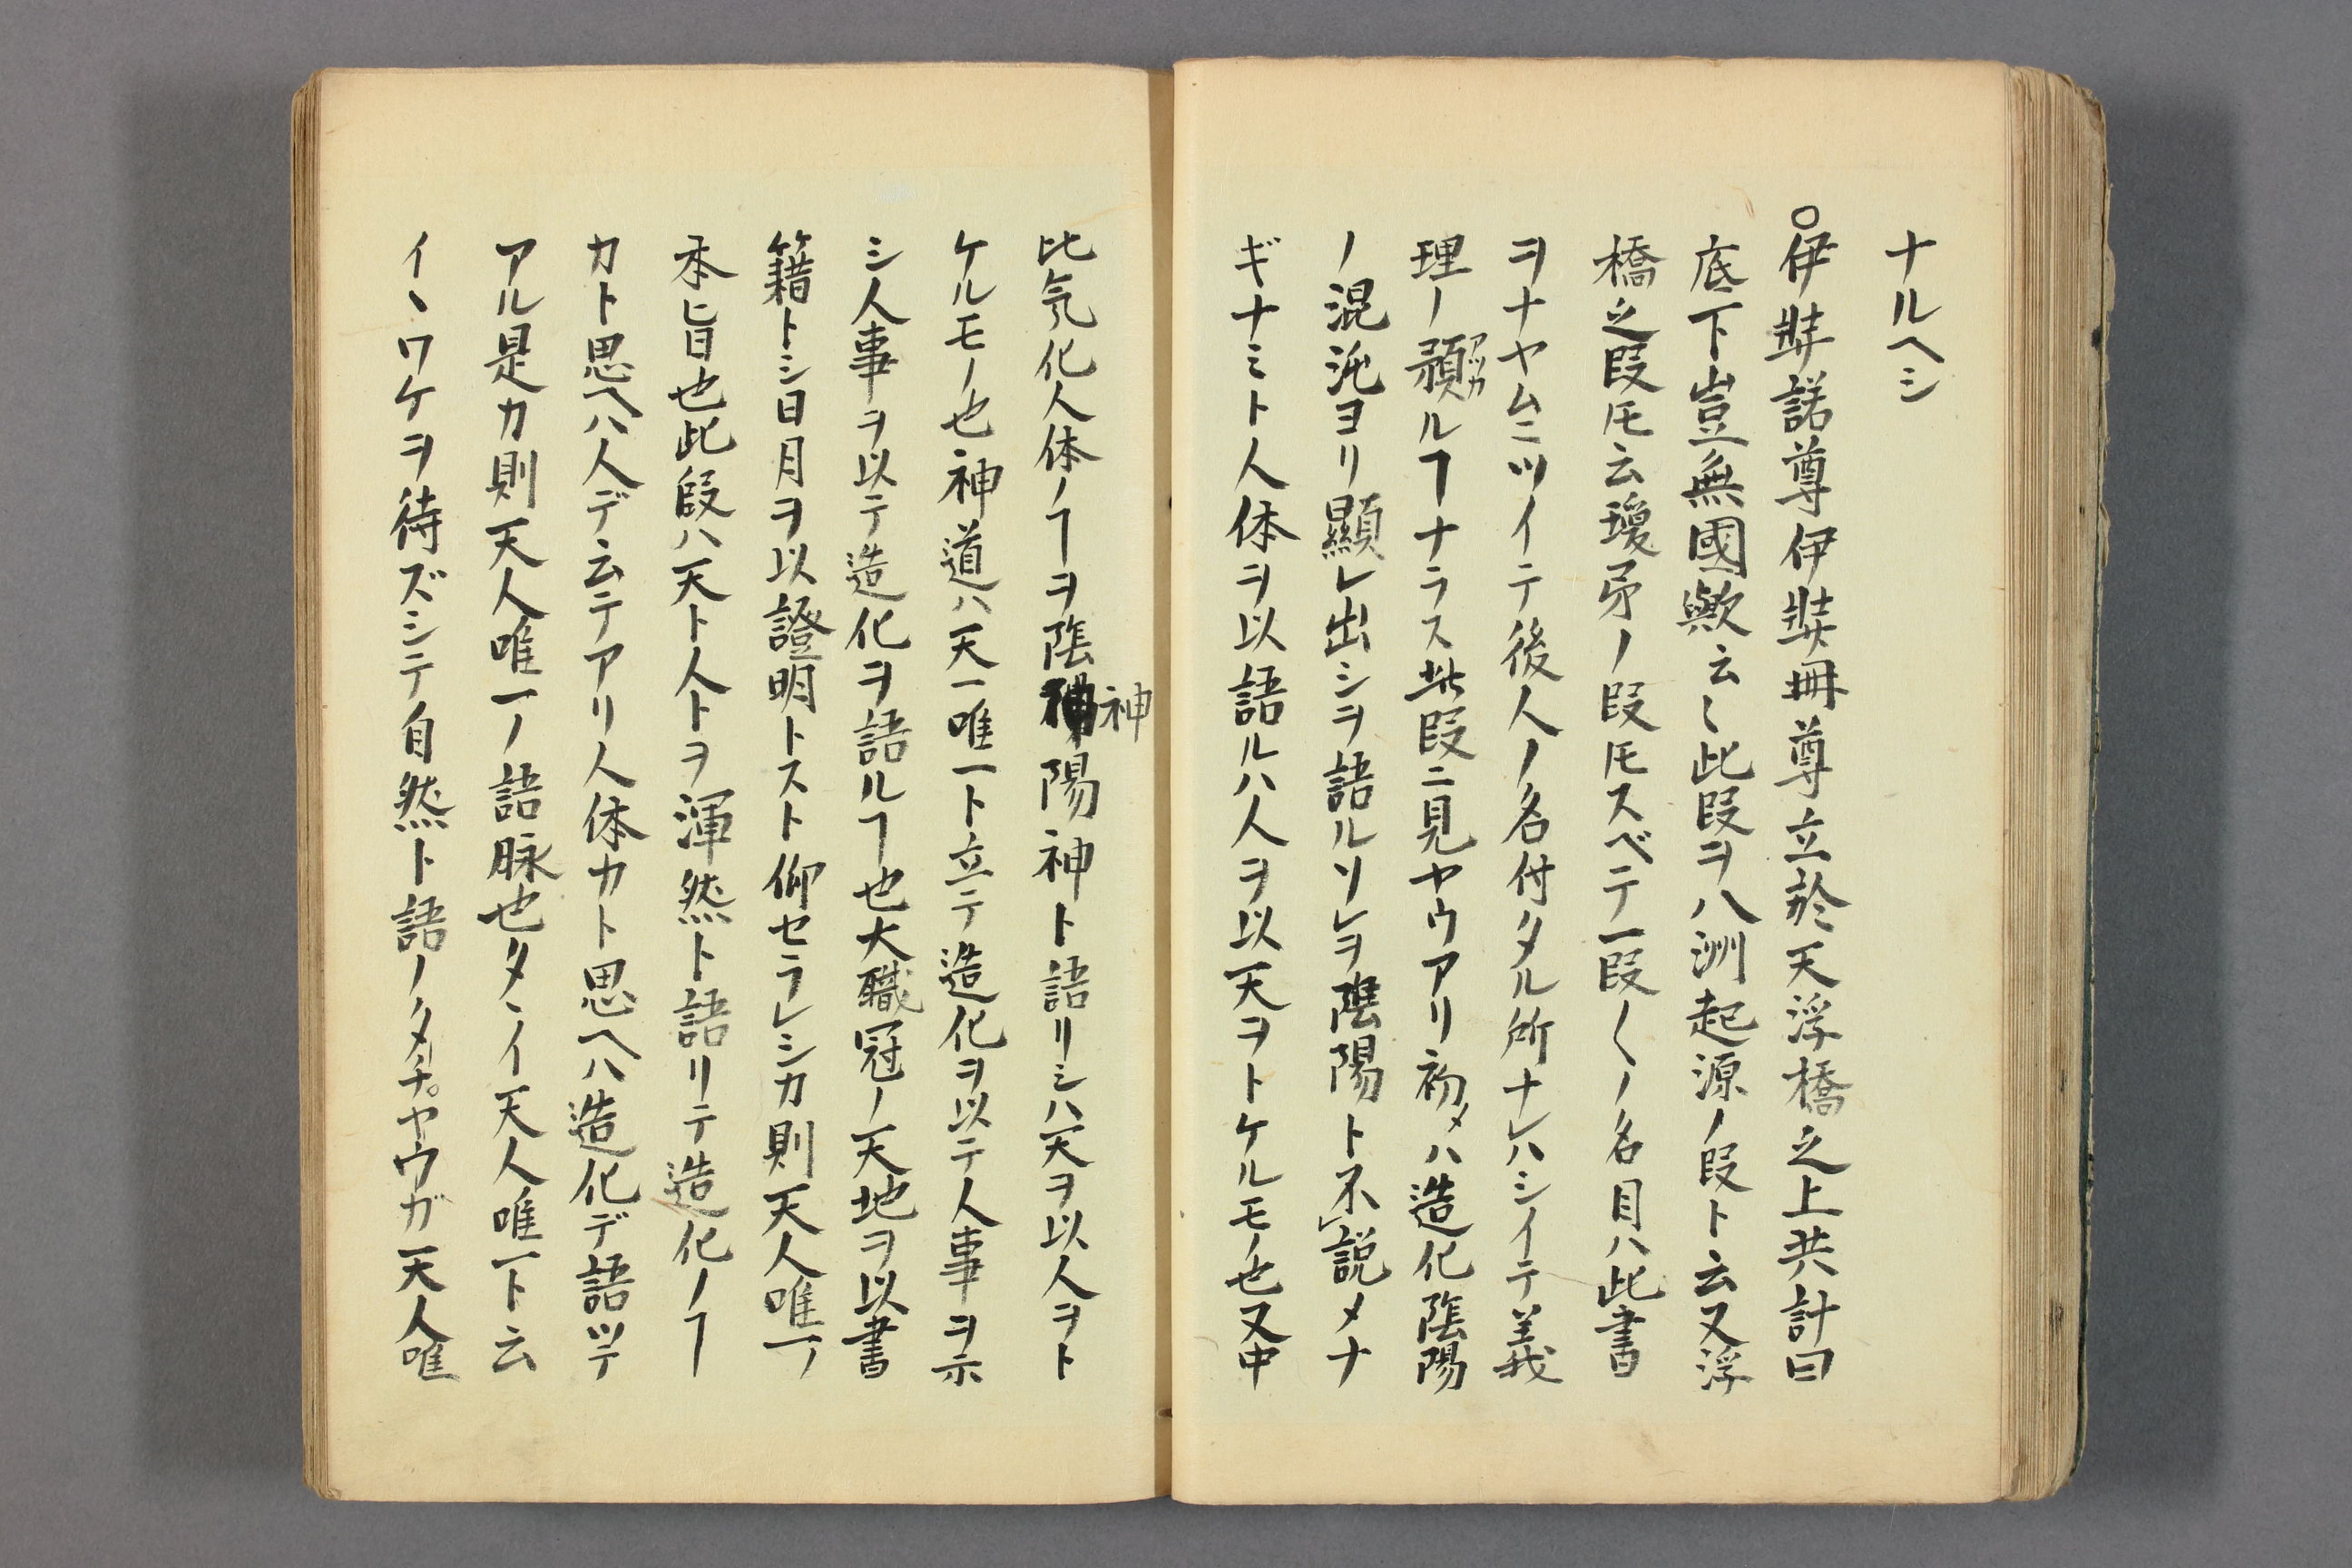 ナルヘシ
○伊弉諾尊伊弉冊尊立於天浮橋之上共計曰
底下豈無國歟云〻此段ヲ八洲起源ノ段ト云又浮
橋之段𪜈云瓊矛ノ段𪜈スベテ一段〱ノ名目ハ此書
ヲナヤムニツイテ後人ノ名付タル所ナレハシイテ義
理ノ預ルヿナラス此段ニ見ヤウアリ初メハ造化陰陽
ノ混沌ヨリ顯レ出シヲ語ルソレヲ陰陽ト不㆑説メナ
ギナミト人体ヲ以語ルハ人ヲ以天ヲトケルモノ也又中
比気化人体ノヿヲ陰神陽神ト語リシハ天ヲ以人ヲト
ケルモノ也神道ハ天一唯一ト立テ造化ヲ以テ人事ヲ示
シ人事ヲ以テ造化ヲ語ルヿ也大職冠ノ天地ヲ以書
籍トシ日月ヲ以證明トスト仰セラレシカ則天人唯一ノ
本旨也此段ハ天ト人トヲ渾然ト語リテ造化ノヿ
カト思ヘハ人デ云テアリ人体カト思ヘハ造化デ語ツテ
アル是カ則天人唯一ノ語脉也タヽイ天人唯一ト云
イヽワケヲ待ズシテ自然ト語ノタチヤウガ天人唯